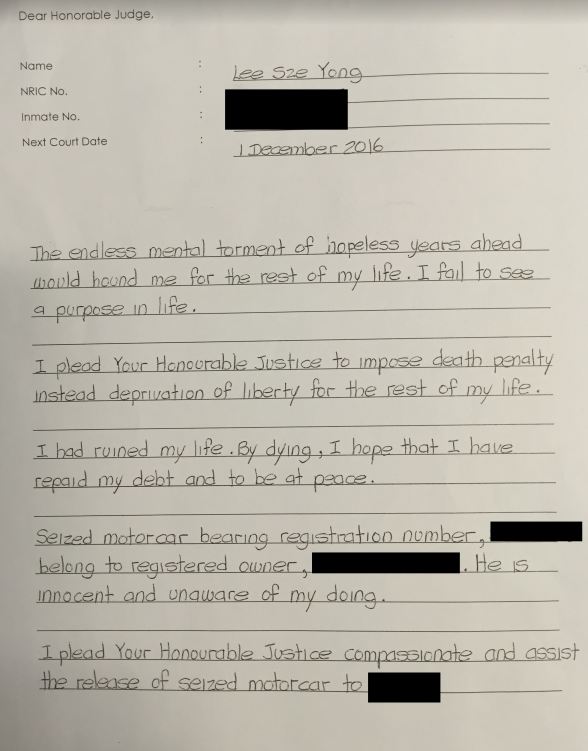 Dear Honorable Judge,
Name : Lee Sze Yong
NRIC No. :
Inmate No. :
Next Court Date : 1 December 2016
The endless mental torment of hopeless years ahead
would hound me for the rest of my life. I fail to see
a purpose in life.
I plead Your Honourable Justice to impose death penalty
instead deprivation of liberty for the rest of my life.
I had ruined my life. By dying, I hope that I have
repaid my debt and to be at peace.
Seized motorcar bearing registration number,
belong to registered owner, . He is
innocent and unaware of my doing.
I plead Your Honourable Justice compassionate and assist
the release of seized motorcar to